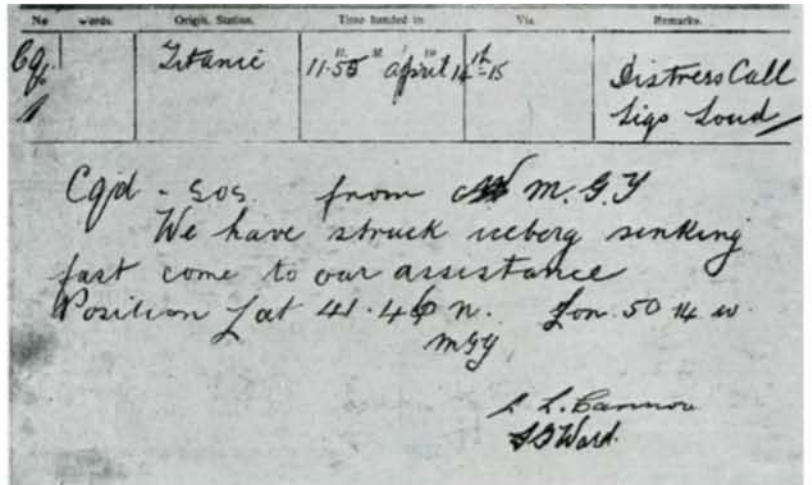 No words. Origin. Station. Time handed in Via Remarks.
Cqd Titanic 11.55 H. M. april 14th-15 Distress Call
1 Sigs Loud
Cqd - SOS. from M.G.Y
We have struck iceberg sinking
fast come to our assistance
Position Lat 41.46 n. Lon. 50 14 w.
MGY
L. Cannon
S D Ward.